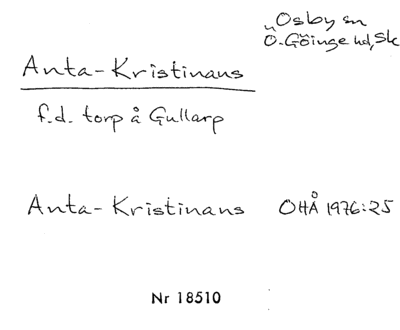 Osby sn
Ö. Göinge hd, Sk
Anta-Kristinans
f.d. torp å Gullarp
Anta-Kristinans OHÅ 1976:25
Nr 18510